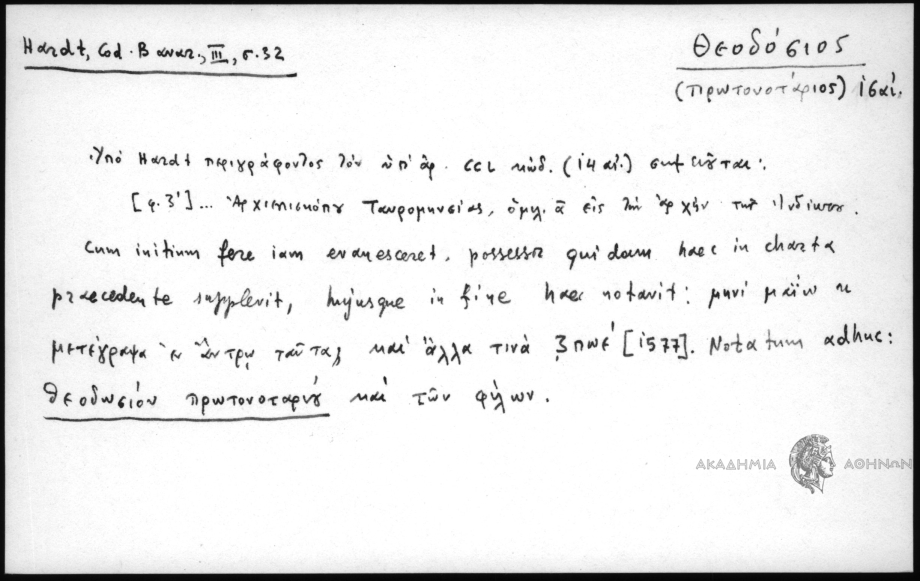 Hardt, Cod. Βαναr., III, σ. 32
Θεοδόσιος
(πρωτονοτάριος) ις αἰ.
Ὑπό Hardt περιγράφοντος τόν ὑπ' ἀρ. CCL κώδ. (14 αἰ.) σημειοῦται:
[φ. 3'] ... Ἀρχιεπισκόπου Ταυρομηνείας, ὁμιλ. ᾱ εἰς τήν ἀρχήν τῆς Ἰνδίκτου.
Cum initium fere iam evanesceret, possessor quidam haec in charta
praecedente supplevit, hujusque in fine haec notavit: μηνί μαΐω
μετέγραψα ἐν ἄντρῳ ταῦτα, καί ἄλλα τινά ζπωέ [1577]. Notatum adhuc:
Θεοδωσιόν πρωτονοταρίου καί τῶν φήλων.
ΑΚΑΔΗΜΙΑ ΑΘΗΝΩΝ